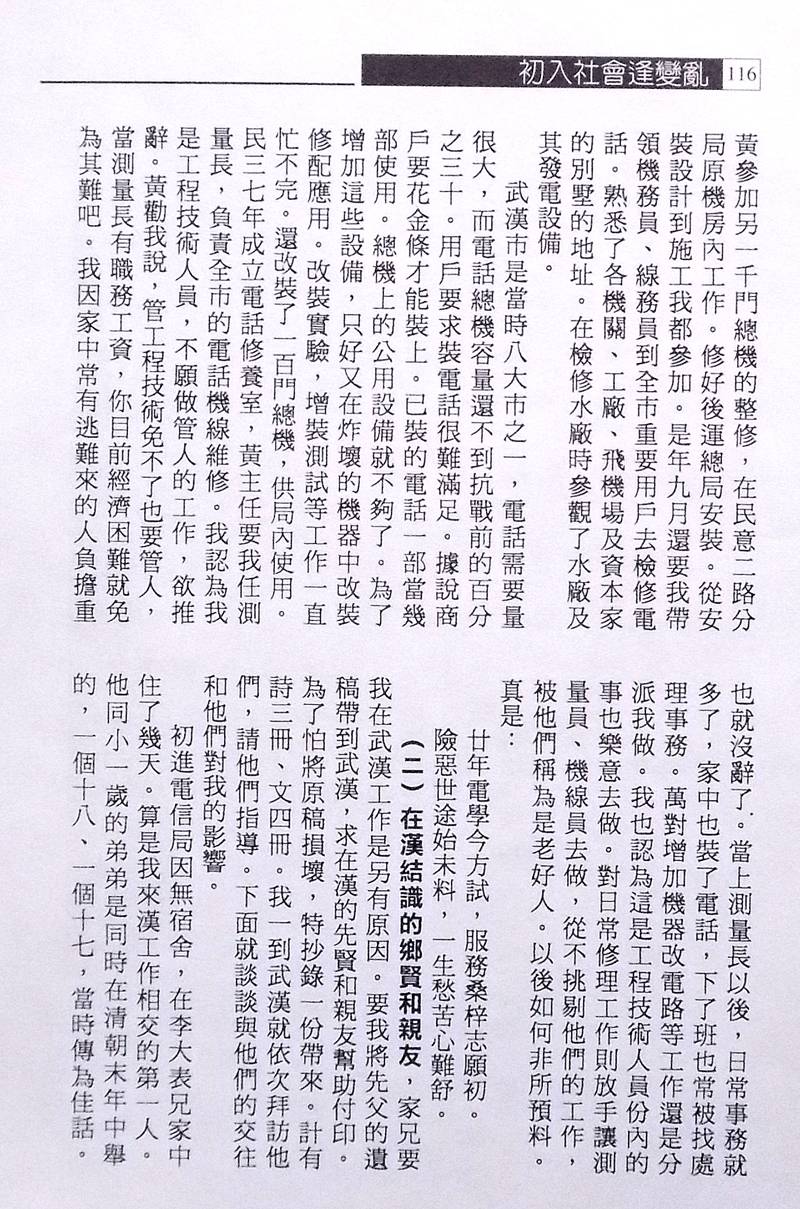 初入社會逢變亂 116
黃參加另一千門總機的整修，在民意二路分
局原機房內工作。修好後運總局安裝。從安
裝設計到施工我都參加。是年九月還要我帶
領機務員、線務員到全市重要用戶去檢修電
話。熟悉了各機關、工廠、飛機場及資本家
的別墅的地址。在檢修水廠時參觀了水廠及
其發電設備。
武漢市是當時八大市之一，電話需要量
很大，而電話總機容量還不到抗戰前的百分
之三十。用戶要求裝電話很難滿足。據說商
戶要花金條才能裝上。已裝的電話一部當幾
部使用。總機上的公用設備就不夠了。為了
增加這些設備，只好又在炸壞的機器中改裝
修配應用。改裝實驗，增裝測試等工作一直
忙不完。還改裝了一百門總機，供局內使用。
民三七年成立電話修養室，黃主任要我任測
量長，負責全市的電話機線維修。我認為我
是工程技術人員，不願做管人的工作，欲推
辭。黃勸我說，管工程技術免不了也要管人，
當測量長有職務工資，你目前經濟困難就免
為其難吧。我因家中常有逃難來的人負擔重
也就沒辭了。當上測量長以後，日常事務就
多了，家中也裝了電話，下了班也常被找處
理事務。萬對增加機器改電路等工作還是分
派我做。我也認為這是工程技術人員份內的
事也樂意去做。對日常修理工作則放手讓測
量員、機線員去做，從不挑剔他們的工作，
被他們稱為是老好人。以後如何非所預料。
真是：
廿年電學今方試，服務桑梓志願初。
險惡世途始未料，一生愁苦心難舒。
（二）在漢結識的鄉賢和親友，家兄要
我在武漢工作是另有原因。要我將先父的遺
稿帶到武漢，求在漢的先賢和親友幫助付印。
為了怕將原稿損壞，特抄錄一份帶來。計有
詩三冊、文四冊。我一到武漢就依次拜訪他
們，請他們指導。下面就談談與他們的交往
和他們對我的影響。
初進電信局因無宿舍，在李大表兄家中
住了幾天。算是我來漢工作相交的第一人。
他同小一歲的弟弟是同時在清朝末年中舉
的，一個十八、一個十七，當時傳為佳話。